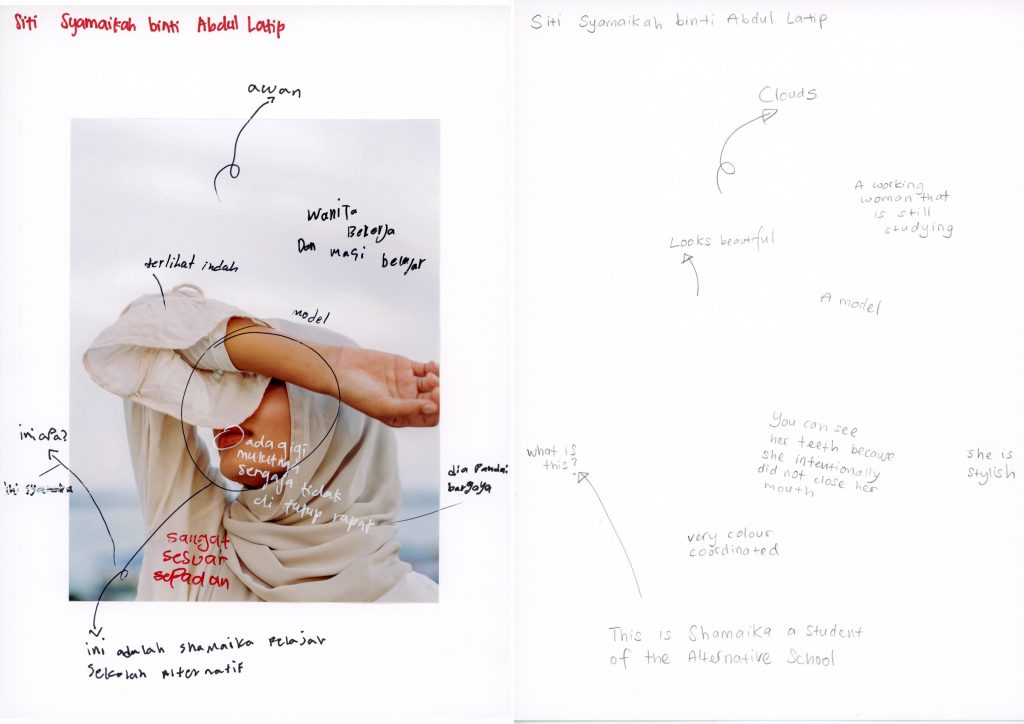 Siti Syamaikah binti Abdul Latip
awan
Wanita
Bekerja
Dan masi belajar
terlihat indah
model
ini apa?
ada gigi
mulutnya
sengaja tidak
di tutup rapat
dia Pandai
bargaya
sangat
sesuai
sepadan
ini adalah shamaika Pelajar
Sekolah Alternatif
Siti Syamaikah binti Abdul Latip
Clouds
A working
woman that
is still
studying
Looks beautiful
A model
What is
this?
You can see
her teeth because
she intentionally
did not close her
mouth
she is
stylish
very colour
coordinated
This is Shamaika a student
of the Alternative School